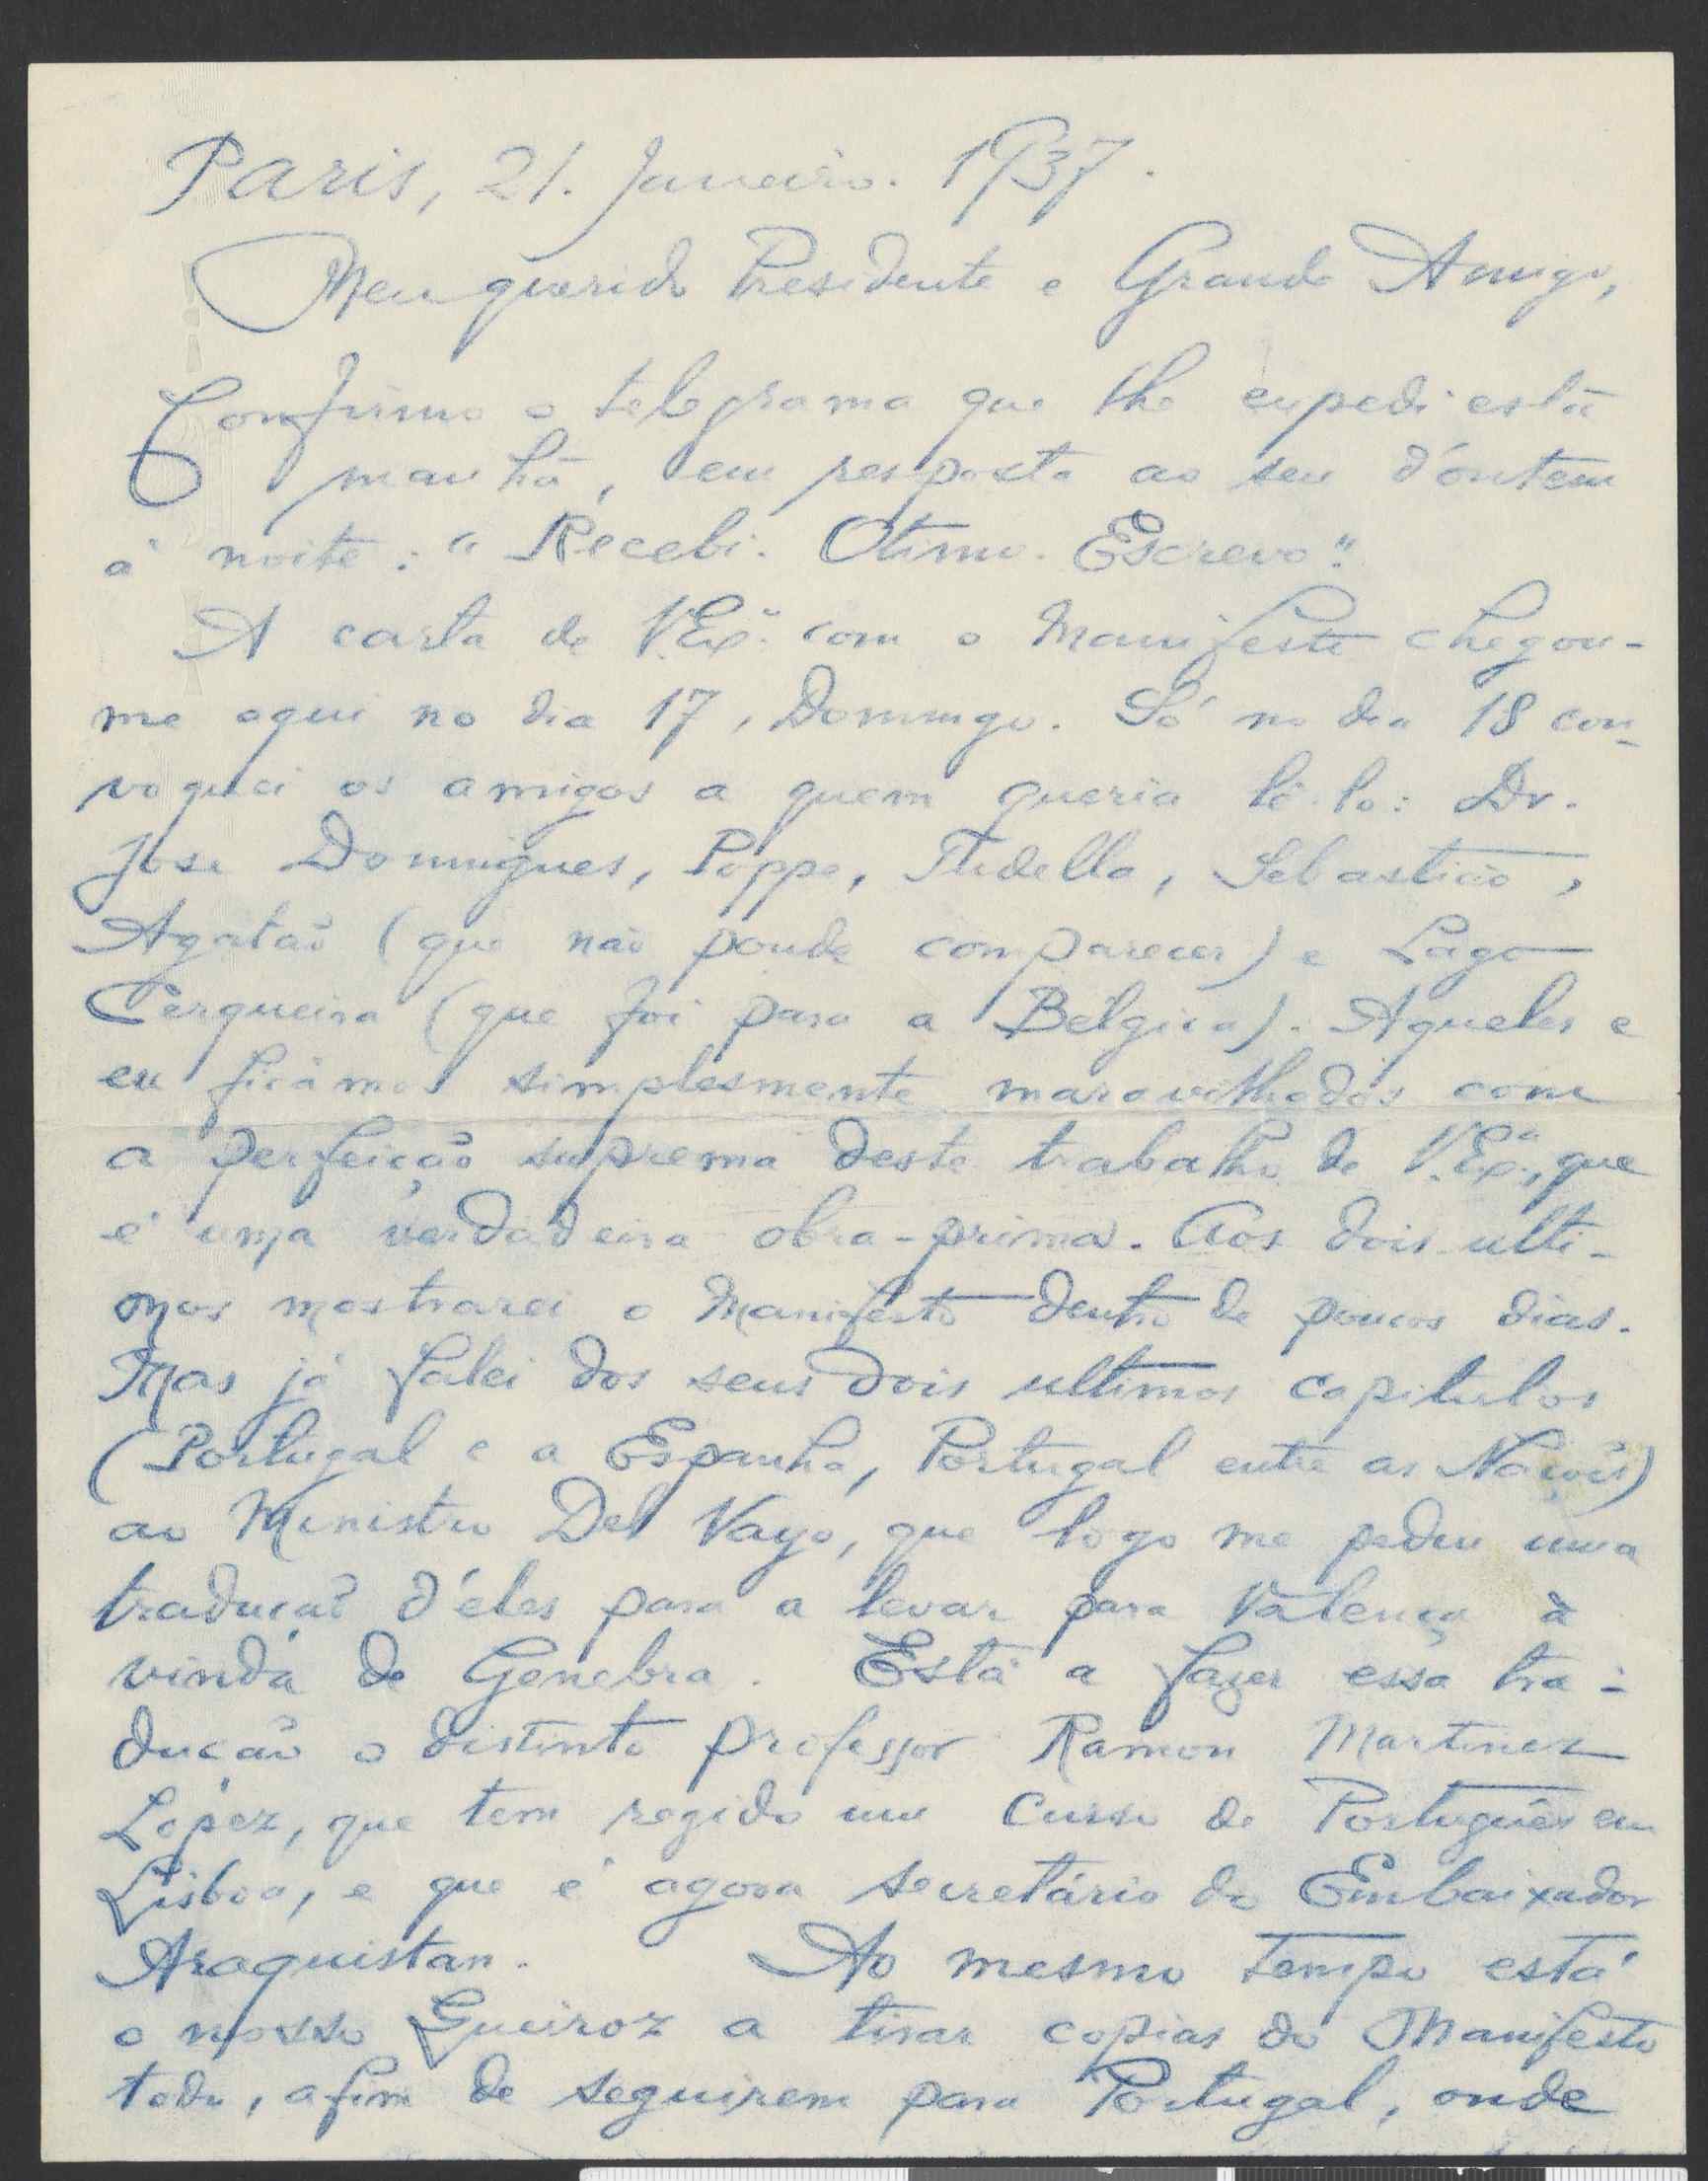 Paris, 21. Janeiro. 1937.
Meu querido Presidente e Grande Amigo,
Confirmo o telegrama que lhe expedi esta
manhã, em resposta ao seu d'óntem
á noite: "Recebi. Otimo. Escrevo".
A carta de V. Exª. com o Manifesto chegou-
me aqui no dia 17, Domingo. Só no dia 18 con-
voquei os amigos a quem queria lê-lo: Dr.
José Domingues, Poppe, Tudella, Sebastião,
Agatão (que não poude comparecer) e Lago
Cerqueira (que foi para a Bélgica). Aqueles e
eu ficámos simplesmente maravilhados com
a perfeição suprema deste trabalho de V. Exª., que
é uma verdadeira obra-prima. Aos dois ulti-
mos mostrarei o Manifesto dentro de poucos dias.
Mas já falei dos seus dois ultimos capitulos
(Portugal e a Espanha, Portugal entre as Nações)
ao Ministro Del Vayo, que logo me pediu uma
tradução d'éles para a levar para Valença à
vinda de Genebra. Está a fazer essa tra-
dução o distinto professor Ramon Martinez
López, que tem regido um Curso de Português em
Lisboa, e que é agora secretário do Embaixador
Araquistan. Ao mesmo tempo está
o nosso Queiroz a tirar copias do Manifesto
todo, afim de seguirem para Portugal, onde